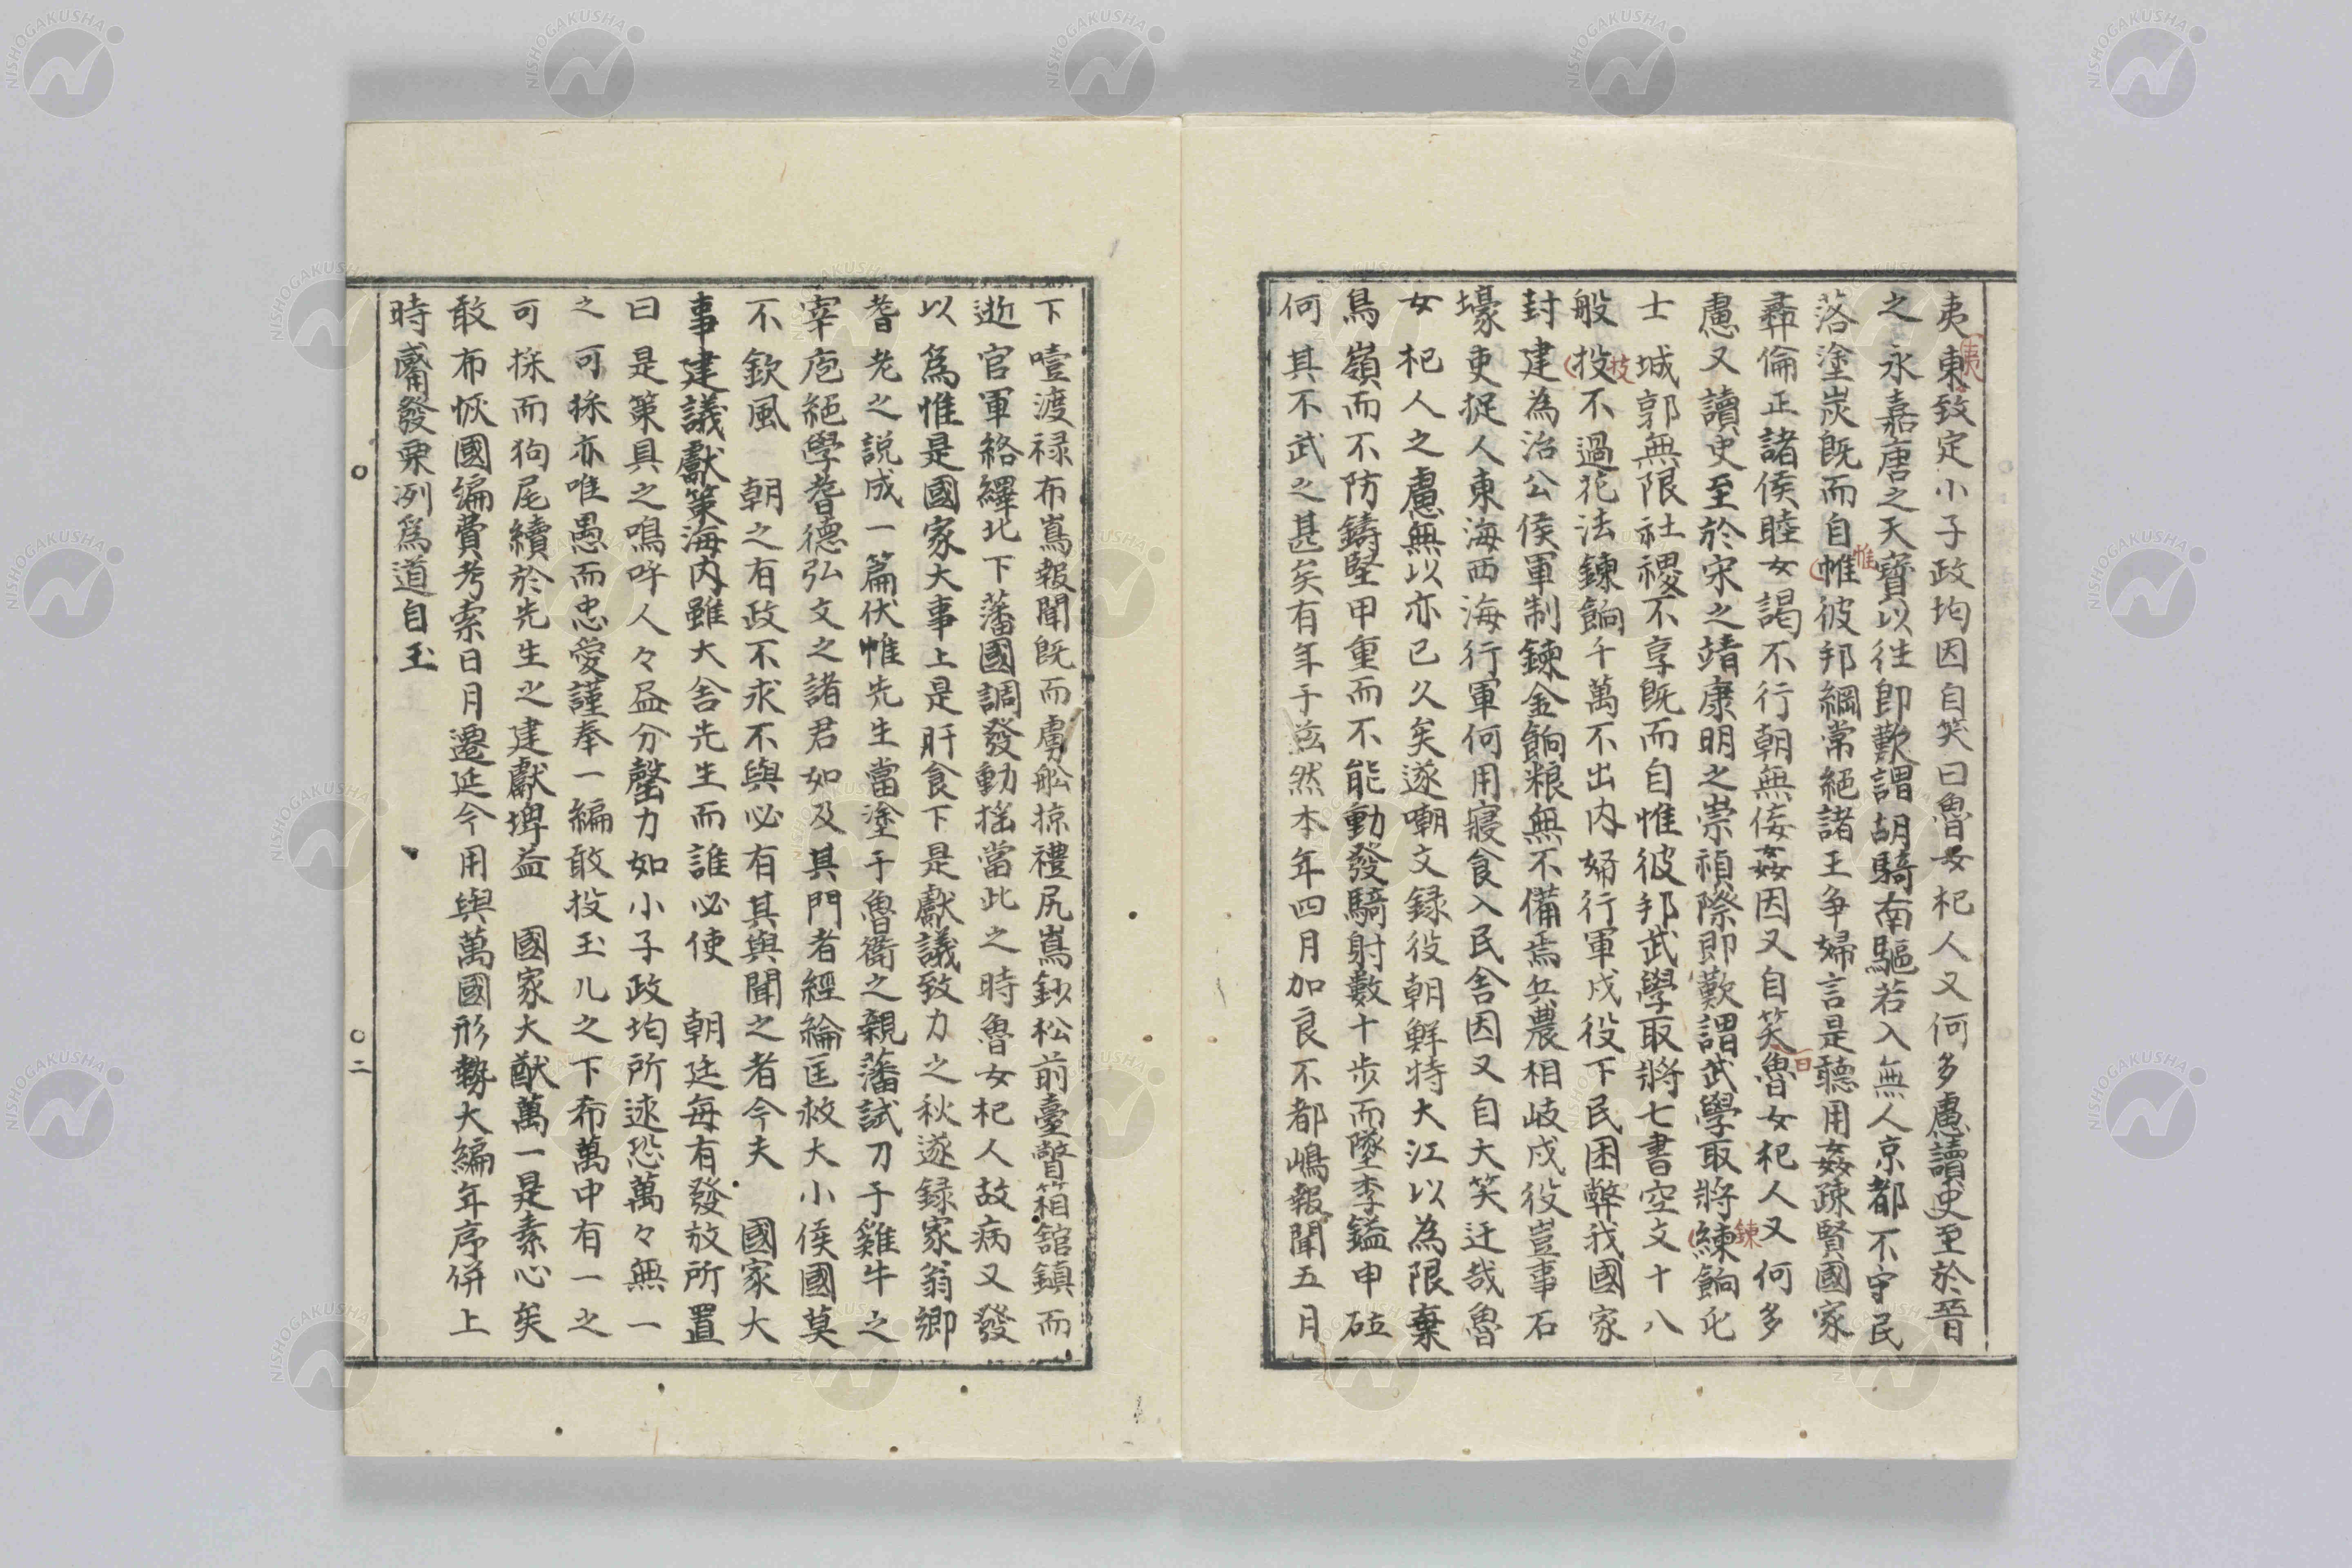 夷東致定小子政均因自笑曰魯女杞人又何多慮讀史至於晉
夷
之永嘉唐之天寶以往卽歎謂胡騎南驅若入無人京都不守民
落塗炭既而自帷彼邦綱常絕諸王争婦言是聽用姦疎賢國家
惟
彜倫正諸侯睦女謁不行朝無侫姦因又自笑魯女杞人又何多
曰
慮又讀史至於宋之靖康明之崇禎際卽歎謂武學取將練餉化
鍊
士城郭無限社禝不享既而自惟彼邦武學取將七書空文十八
般投不過花法鍊餉千萬不出内婦行軍戍役下民困弊我國家
技
封建為治公侯軍制鍊金餉粮無不備焉兵農相岐戍役豈事石
壕吏捉人東海西海行軍何用寢食入民舎因又自大笑迂哉魯
女杞人之慮無以亦已久矣遂嘲文録役朝鮮特大江以為限棄
鳥嶺而不防鑄堅甲重而不能動發騎射數十步而墜李鎰申砬
何其不武之甚矣有年于茲然本年四月加良不都嶋報聞五月
下噎渡禄布嶌報聞既而虜舩掠禮尻嶌鈔松前臺瞥箱舘鎮而
逝官軍絡繹北下藩國調發動揺當此之時魯女杞人故病又發
以爲惟是國家大事上是肝食下是獻議致力之秋遂録家翁鄉
耆老之説成一篇伏帷先生當塗于魯衞之親藩試刀于雞牛之
宰庖絕學耆德弘文之諸君如及其門者經綸匡救大小侯國莫
不欽風 朝之有政不求不與必有其與聞之者今夫 國家大
事建議獻策海内雖大舎先生而誰必使 朝廷每有發放所置
曰是策具之鳴呼人々益分罄力如小子政均所逑恐萬々無一
之可採亦唯愚而忠愛謹奉一編敢投玉几之下希萬中有一之
可採而狗尾續於先生之建獻埤益 國家大猷萬一是素心矣
敢布恢國編費考索日月遷延今用與萬國形勢大編年序併上
時觱發栗冽爲道自玉
二